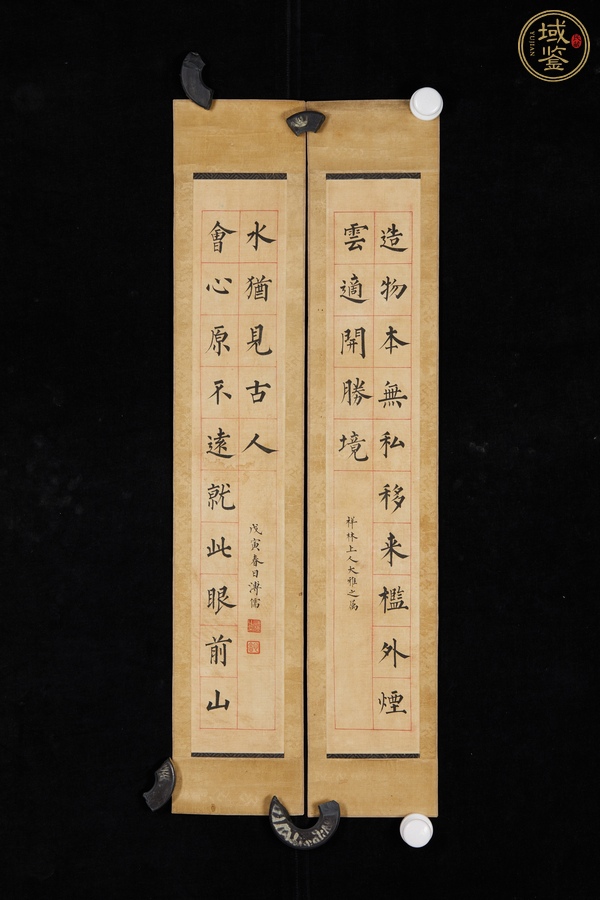 造物本無私移来檻外煙
雲適開勝境
祥林上人大雅之属
會心原不遠就此眼前山
水猶見古人
戊寅春日溥儒
域鉴
YUJIAN